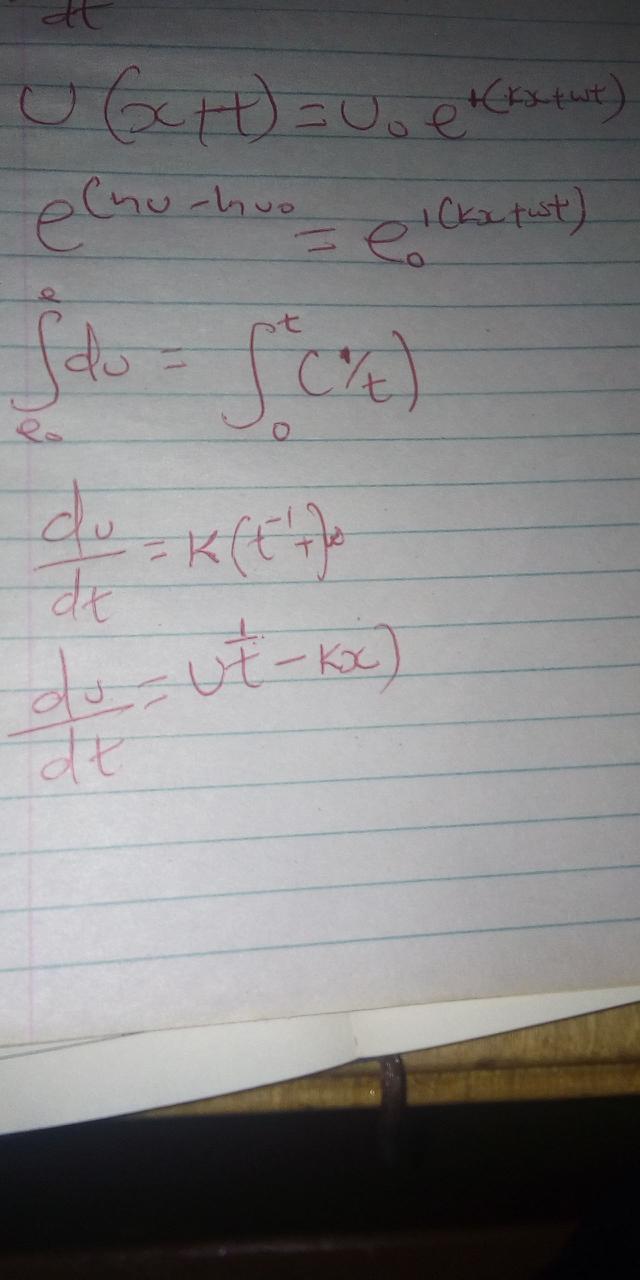 dt
U(x+t) = U₀ e^i(kx+wt)
e^(hu - hu₀ = e₀^i(kx+wt)
∫_{e₀}^{e} du = ∫_0^t (1/t)
du/dt = K(t⁻¹+)
du/dt = U^{1/t} - kx)